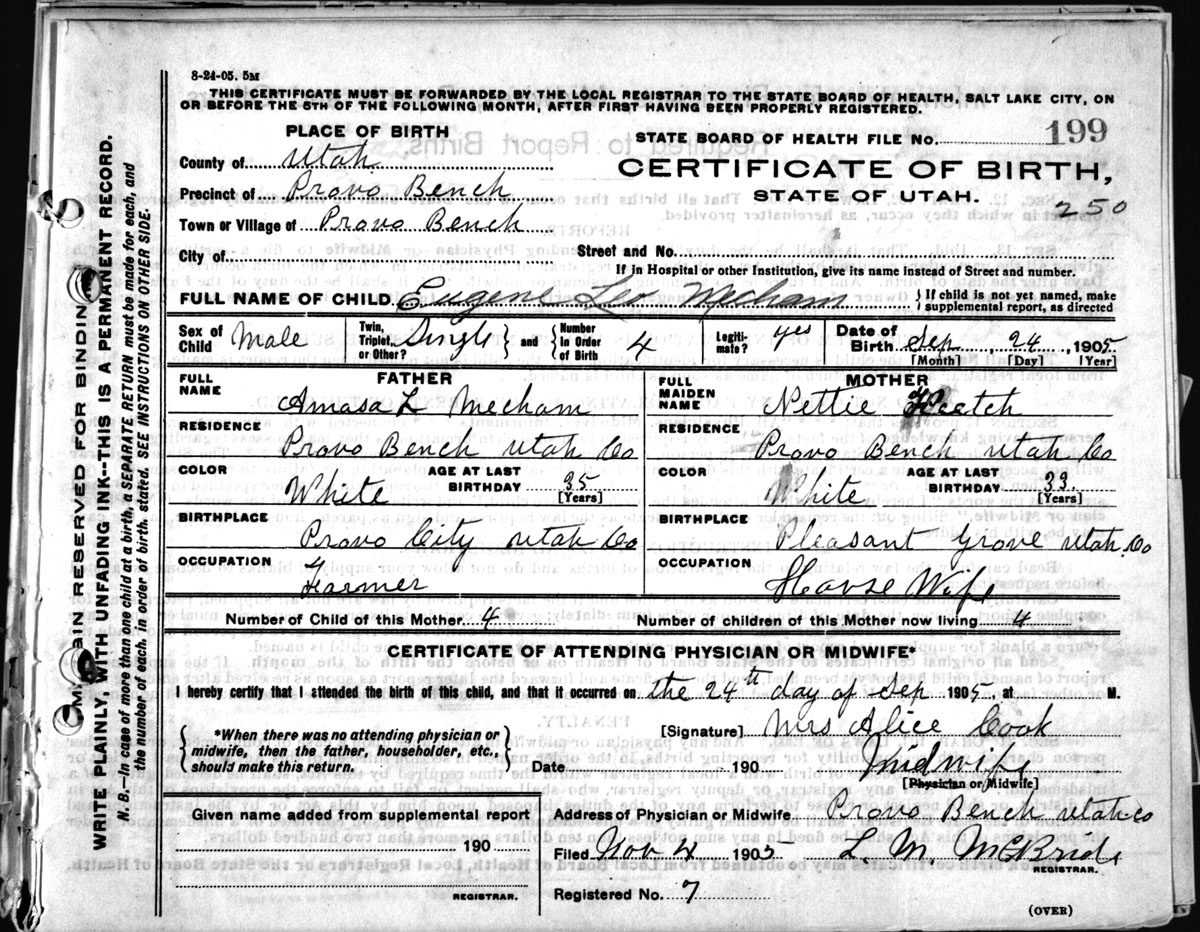 8-24-05. 5M
THIS CERTIFICATE MUST BE FORWARDED BY THE LOCAL REGISTRAR TO THE STATE BOARD OF HEALTH, SALT LAKE CITY, ON
OR BEFORE THE 5TH OF THE FOLLOWING MONTH, AFTER FIRST HAVING BEEN PROPERLY REGISTERED.
PLACE OF BIRTH
STATE BOARD OF HEALTH FILE NO. 199
County of Utah
CERTIFICATE OF BIRTH,
Precinct of Provo Bench
STATE OF UTAH.
250
Town or Village of Provo Bench
City of Street and No.
If in Hospital or other Institution, give its name instead of Street and number.
FULL NAME OF CHILD Eugene Leo Mecham { If child is not yet named, make supplemental report, as directed
Sex of Child Male Twin, Triplet, or Other? Single } and { Number in Order of Birth 4 Legitimate? yes Date of Birth Sep 24, 1905
[Month] [Day] [Year]
FATHER MOTHER
FULL NAME Amasa L Mecham FULL MAIDEN NAME Nettie
RESIDENCE RESIDENCE
Provo Bench Utah Co Provo Bench Utah Co
COLOR White AGE AT LAST BIRTHDAY 35 [Years] COLOR White AGE AT LAST BIRTHDAY 33 [Years]
BIRTHPLACE BIRTHPLACE
Provo City Utah Co Pleasant Grove Utah. Co
OCCUPATION OCCUPATION
Farmer House Wife
Number of Child of this Mother 4 Number of children of this Mother now living 4
CERTIFICATE OF ATTENDING PHYSICIAN OR MIDWIFE*
I hereby certify that I attended the birth of this child, and that it occurred on the 24th day of Sep 1905 at M.
[Signature] Mrs Alice Cook
{ *When there was no attending physician or midwife, then the father, householder, etc., should make this return. }
Date 190 Midwife
[Physician or Midwife]
Given name added from supplemental report
Address of Physician or Midwife Provo Bench Utah Co
190
Filed Nov 4 1905 L. M. McBride
REGISTRAR.
REGISTRAR.
Registered No. 7
(OVER)
BINDING
WRITE PLAINLY, WITH UNFADING INK--THIS IS A PERMANENT RECORD.
N.B.—In case of more than one child at a birth, a SEPARATE RETURN must be made for each, and
the number of each, in order of birth, stated. SEE INSTRUCTIONS ON OTHER SIDE.
RESERVED FOR